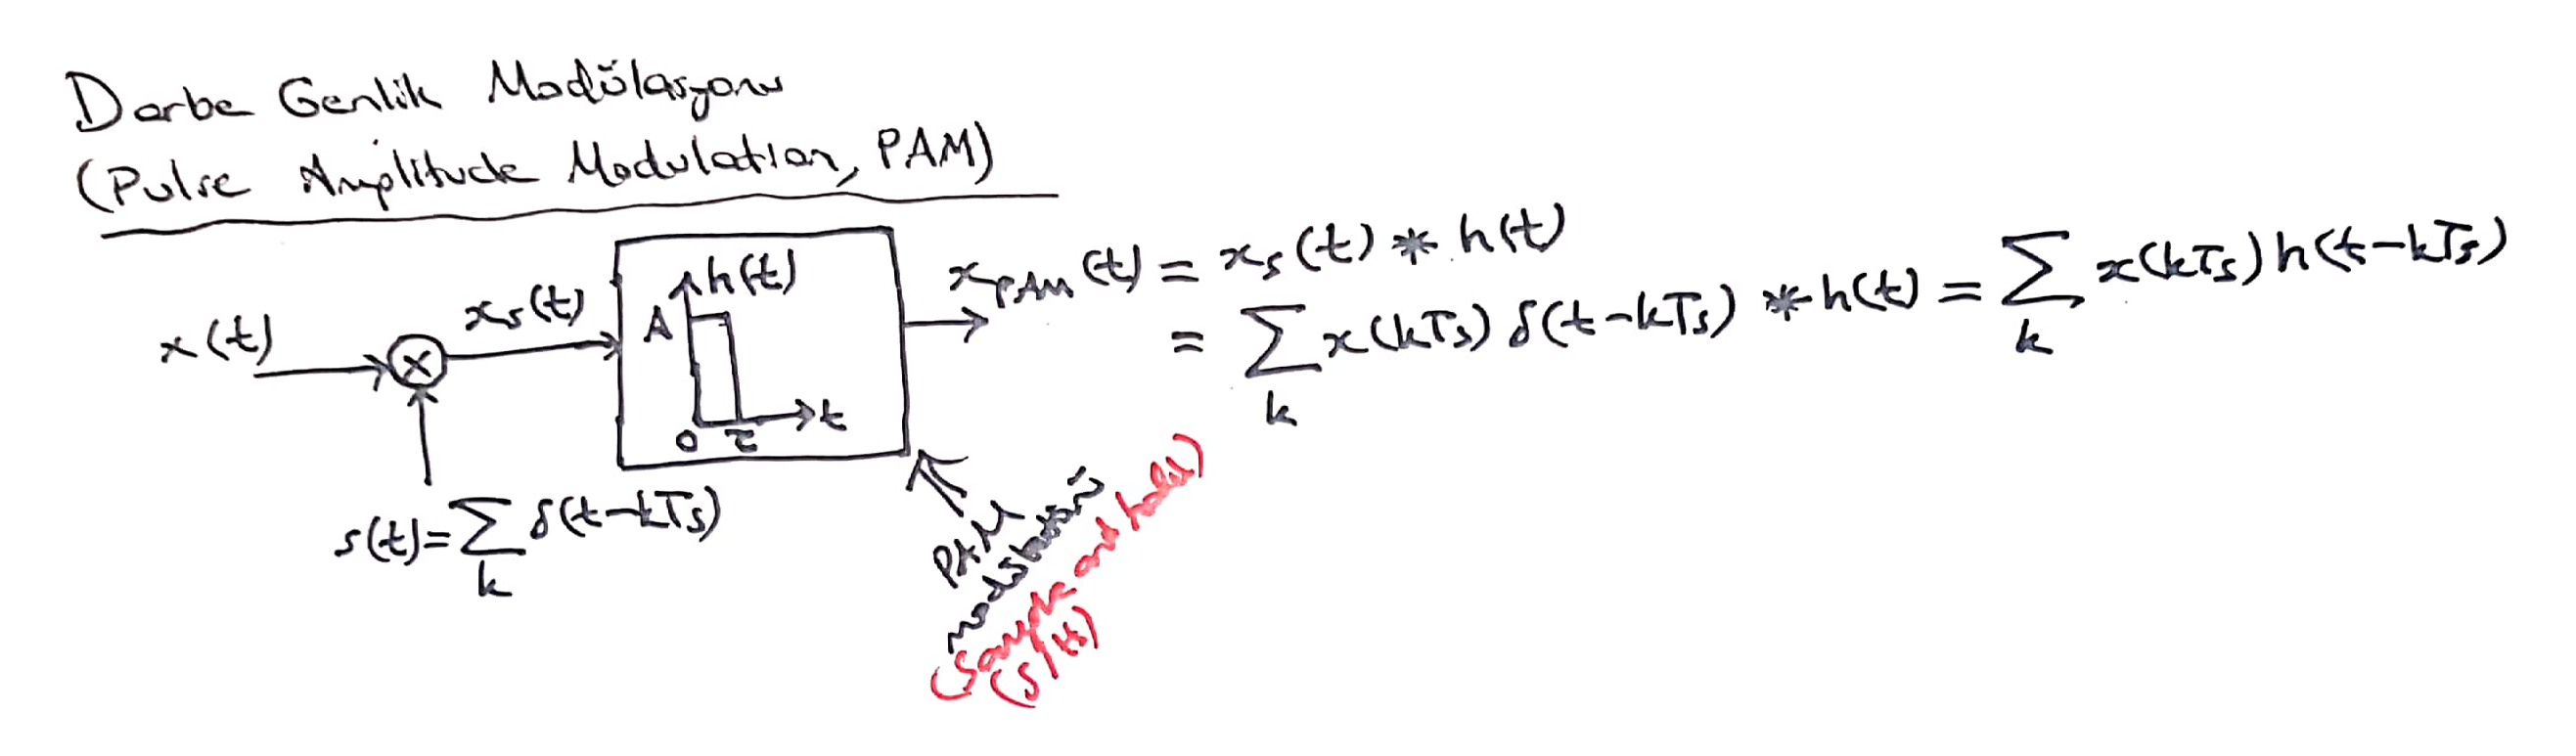 Darbe Genlik Modülasyonu
(Pulse Amplitude Modulation, PAM)
x(t)
xₛ(t)
h(t)
A
0 τ
t
x_PAM(t) = xₛ(t) * h(t)
= ∑ₖ x(kTₛ) δ(t-kTₛ) * h(t) = ∑ₖ x(kTₛ) h(t-kTₛ)
s(t) = ∑ₖ δ(t-kTₛ)
PAM
modülatörü
(Sample and hold)
(S/H)